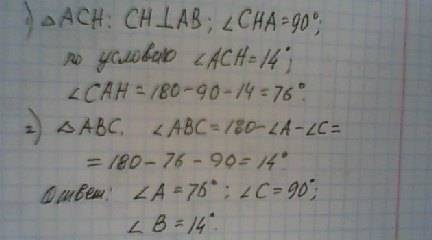 1) △ACH: CH⊥AB; ∠CHA=90°;
по условию ∠ACH=14°;
∠CAH=180-90-14=76°.
2) △ABC. ∠ABC=180-∠A-∠C=
=180-76-90=14°.
Ответ: ∠A=76°; ∠C=90°;
∠B=14°.